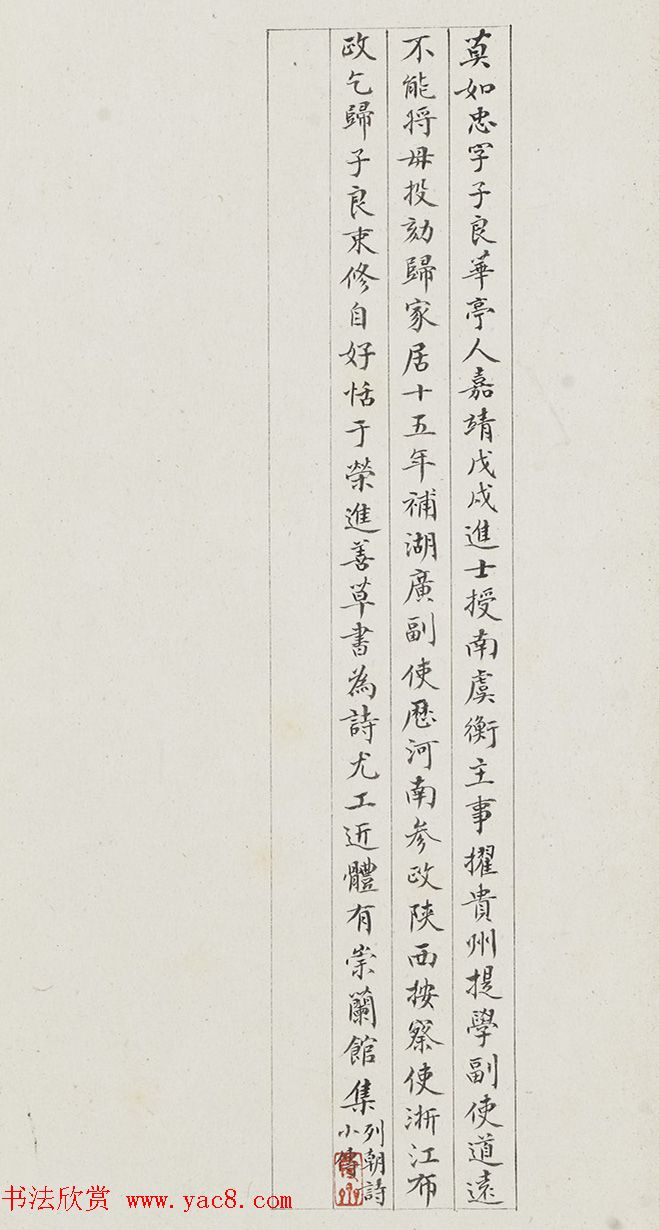 莫如忠字子良華亭人嘉靖戊戌進士授南虞衡主事擢貴州提學副使道遠
不能将母投劾歸家居十五年補湖廣副使歷河南參政陝西按察使浙江布
政乞歸子良束修自好恬于榮進善草書為詩尤工近體有崇蘭館集
列朝詩
小傳
书法欣赏 www.yac8.com